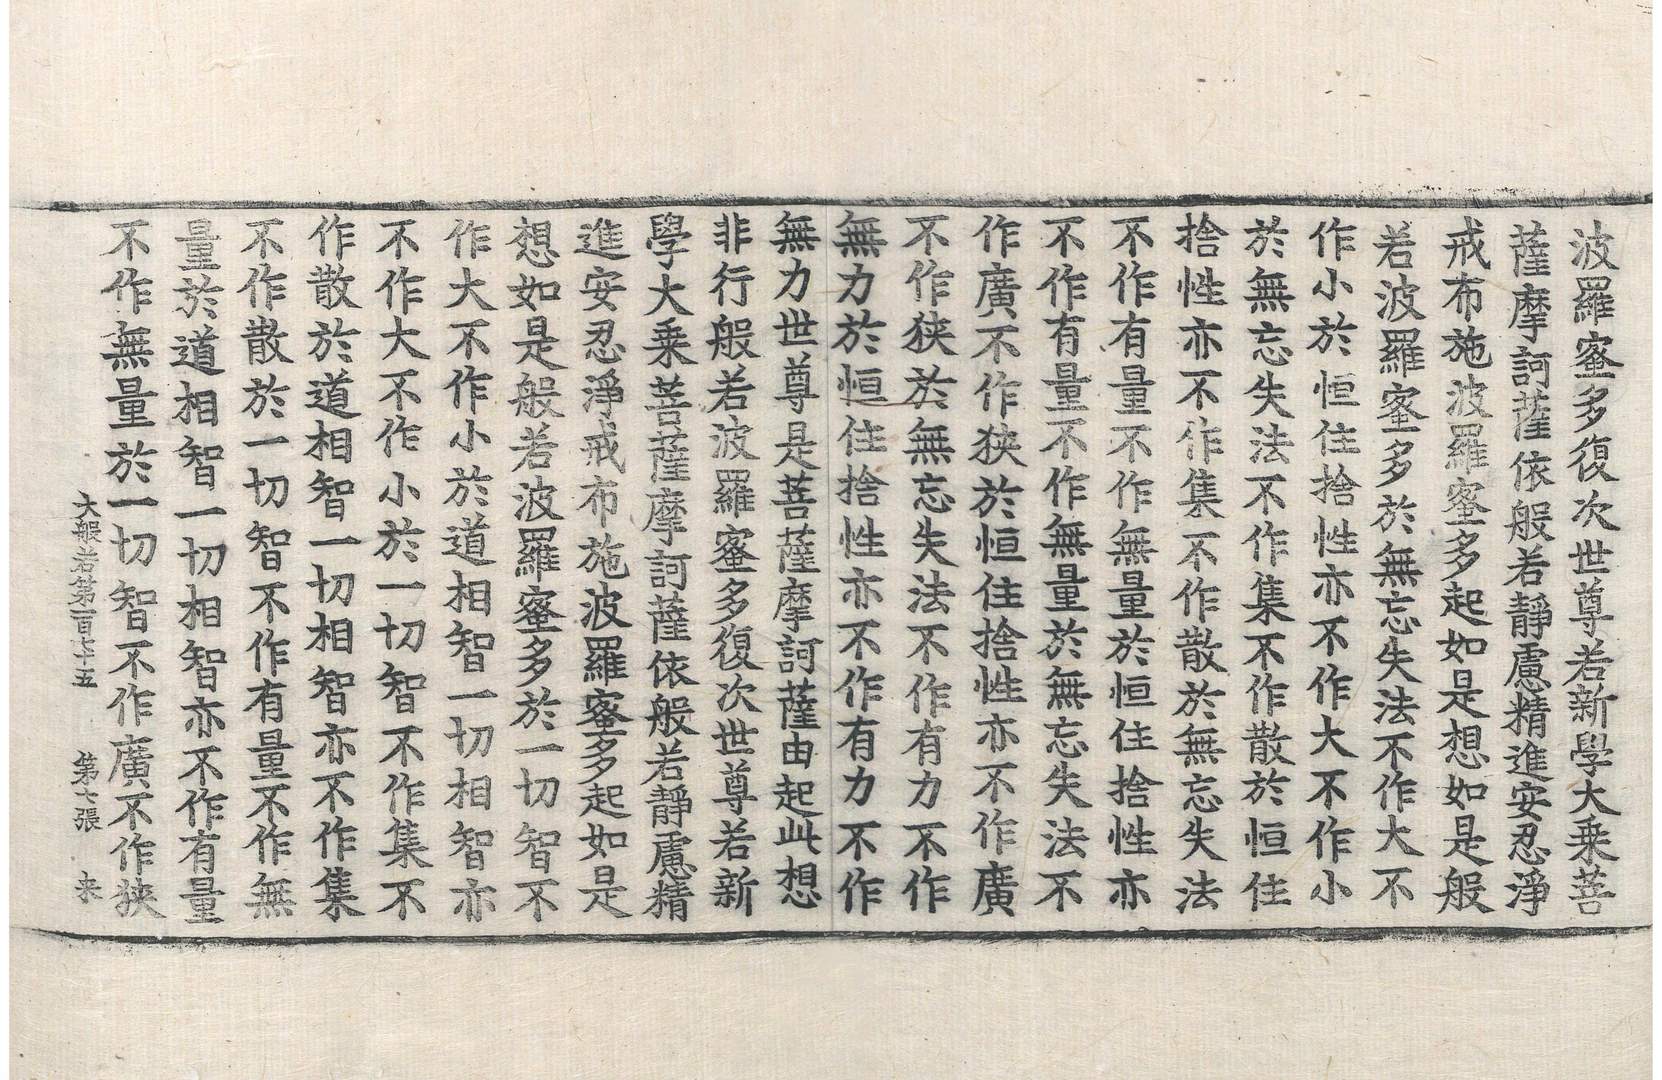 波羅蜜多復次世尊若新學大乗菩
薩摩訶薩依般若靜慮精進安忍淨
戒布施波羅蜜多起如是想如是般
若波羅蜜多於無忘失法不作大不
作小於恒住捨性亦不作大不作小
於無忘失法不作集不作散於恒住
捨性亦不作集不作散於無忘失法
不作有量不作無量於恒住捨性亦
不作有量不作無量於無忘失法不
作廣不作狹於恒住捨性亦不作廣
不作狹於無忘失法不作有力不作
無力於恒住捨性亦不作有力不作
無力世尊是菩薩摩訶薩由起此想
非行般若波羅蜜多復次世尊若新
學大乗菩薩摩訶薩依般若靜慮精
進安忍淨戒布施波羅蜜多起如是
想如是般若波羅蜜多於一切智不
作大不作小於道相智一切相智亦
不作大不作小於一切智不作集不
作散於道相智一切相智亦不作集
不作散於一切智不作有量不作無
量於道相智一切相智亦不作有量
不作無量於一切智不作廣不作狹
大般若第一百七十五 第七張 来